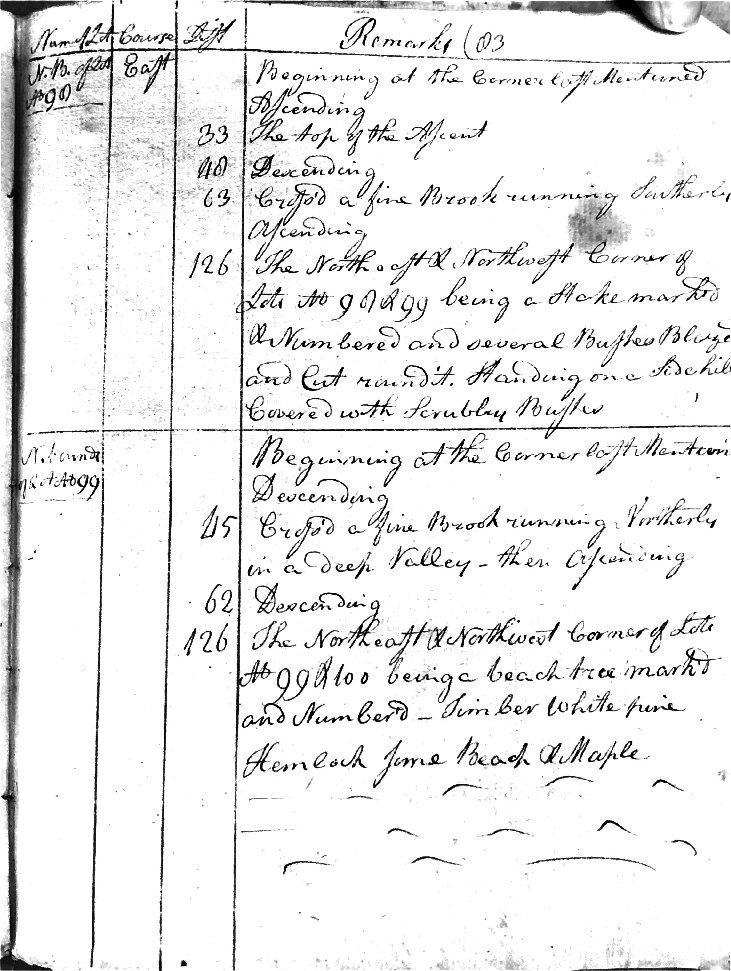 Name of Lot Course Dist Remarks (83
N. B. of Lot East Beginning at the Corner last Mentioned
No 98 Ascending
33 The top of the Ascent
48 Descending
63 Cross'd a fine Brook running Southerly
Ascending
126 The Northeast & Northwest Corner of
Lots No 98 & 99 being a Stake mark'd
& Numbered and several Bushes Blaze
and Cut round it. Standing on a Sidehill
Covered with Scrubby Bushes
N. bounds Beginning at the Corner last Mention
of Lot No 99 Descending
45 Cross'd a fine Brook running Northerly
in a deep Valley - then Ascending
62 Descending
126 The Northeast & Northwest Corner of Lots
No 99 & 100 being a beach tree mark'd
and Number'd - Timber White pine
Hemlock some Beach & Maple